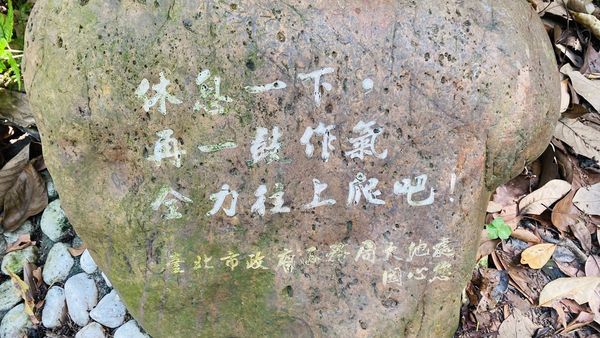 休息一下，
再一鼓作氣
全力往上爬吧！
臺北市政府工務局大地處
關心您